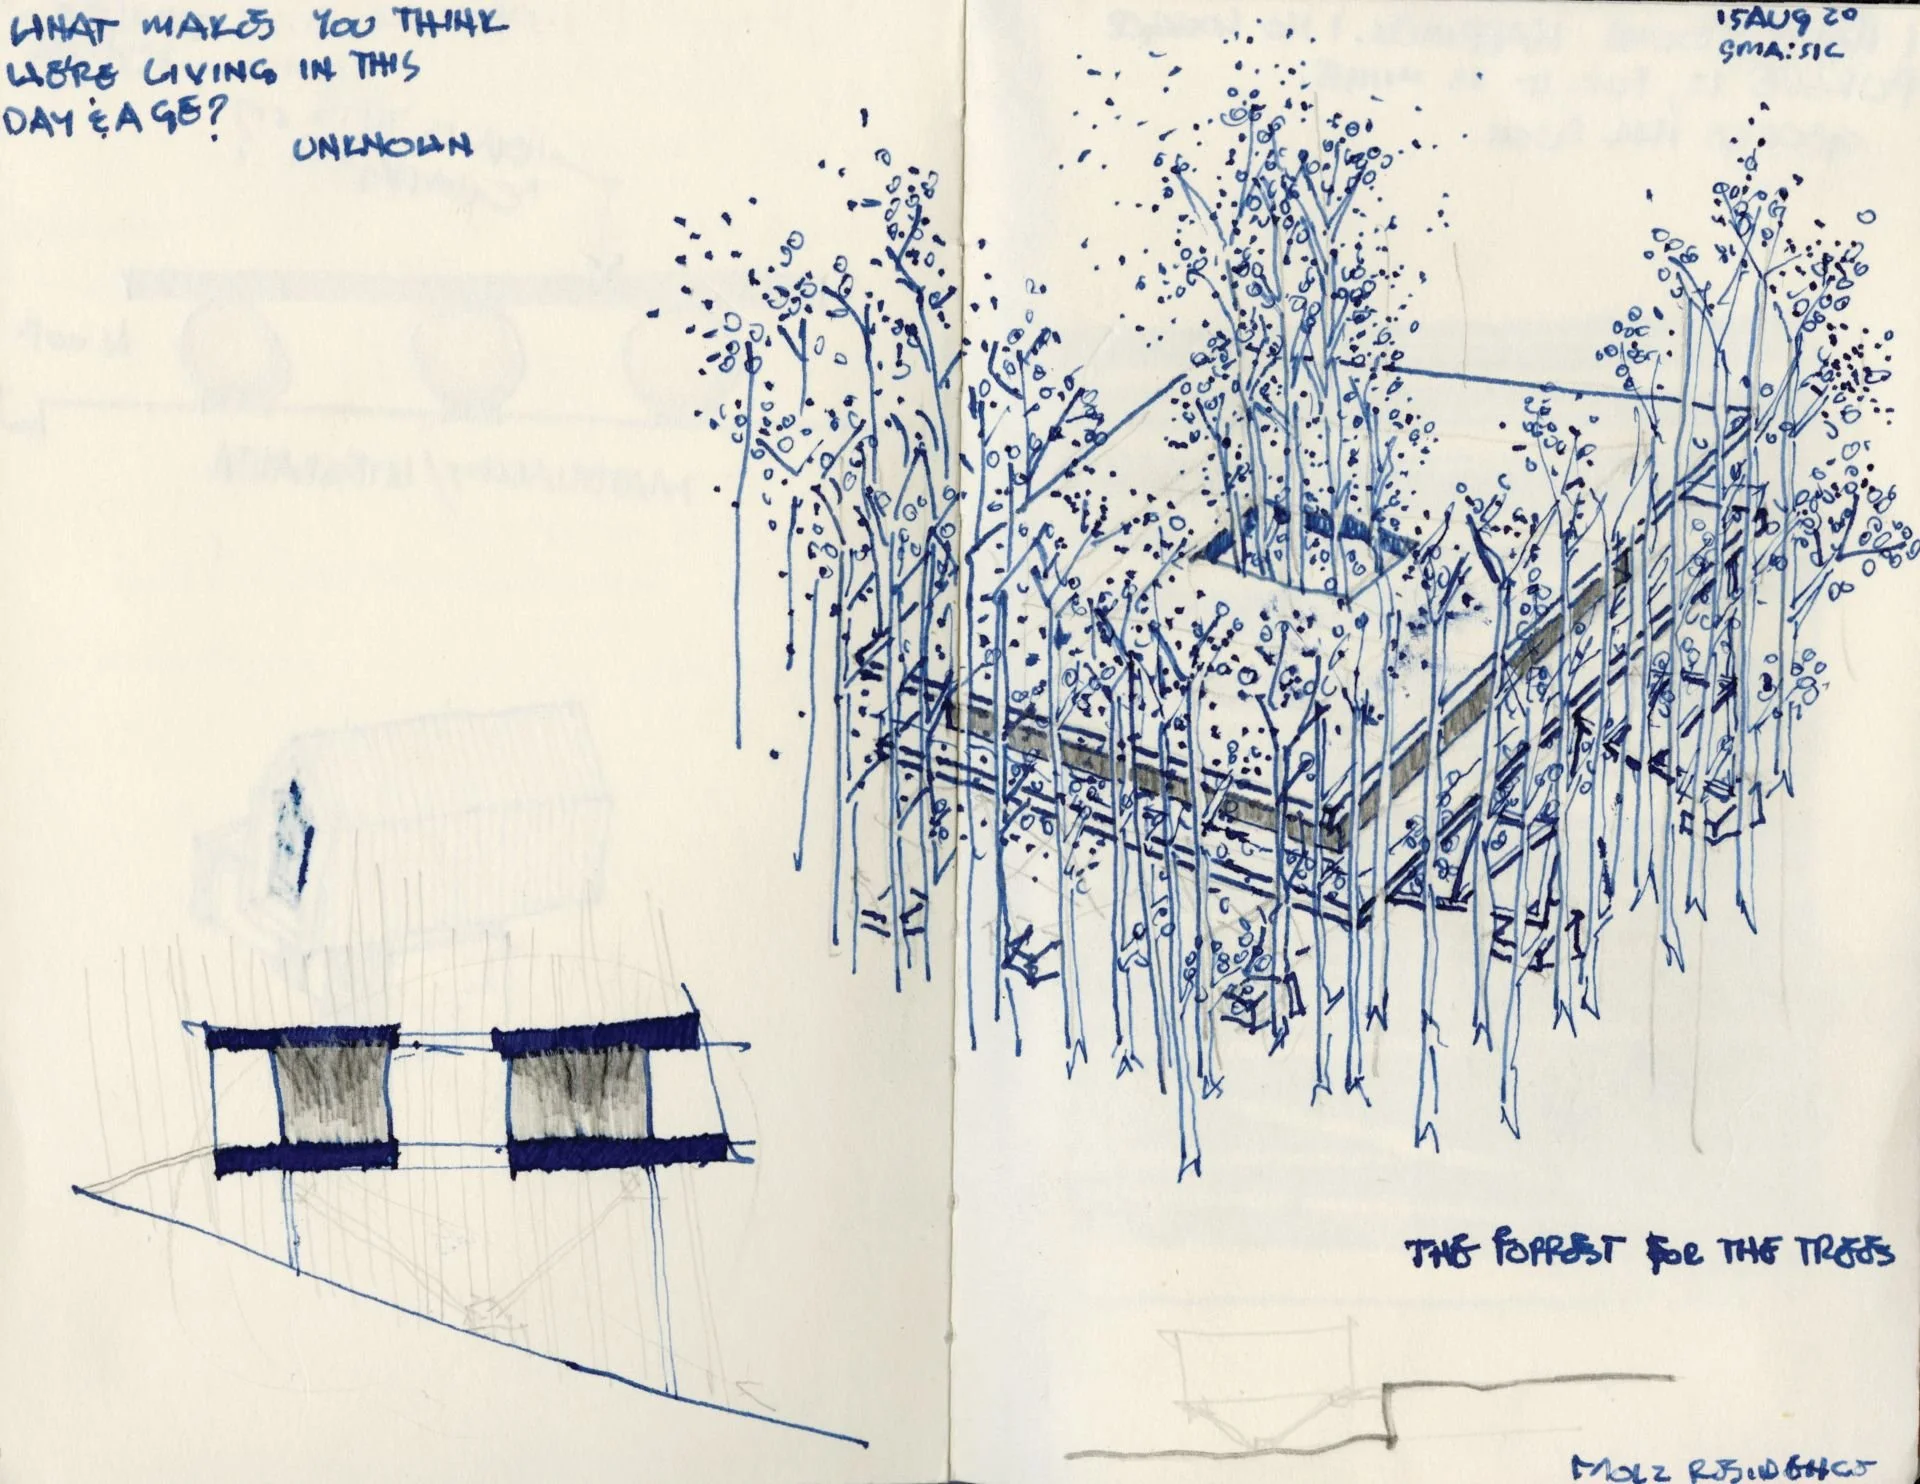 WHAT MAKES YOU THINK
WE'RE LIVING IN THIS
DAY & AGE?
UNKNOWN
15AUG20
THE FORREST FOR THE TREES
RESIDENCE